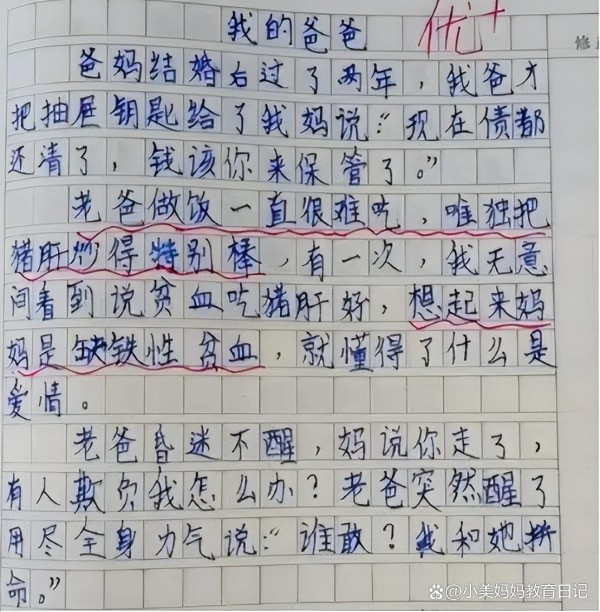 我的爸爸
优+
修正
爸妈结婚后过了两年，我爸才
把抽屉钥匙给了我妈说：“现在债都
还清了，钱该你来保管了。”
老爸做饭一直很难吃，唯独把
猪肝炒得特别棒，有一次，我无意
间看到说贫血吃猪肝好，想起来妈
妈是缺铁性贫血，就懂得了什么是
爱情。
老爸昏迷不醒，妈说你走了，
有人欺负我怎么办？老爸突然醒了
用尽全身力气说：“谁敢？我和她拼
命。”
@小美妈妈教育日记